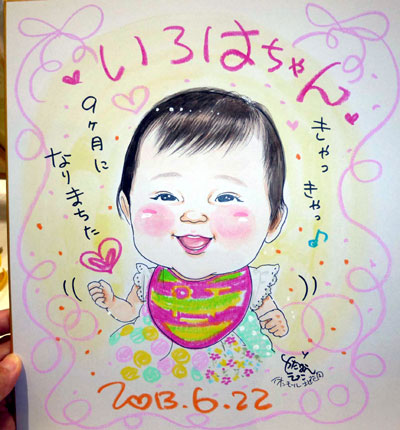 いろはちゃん
きゃっ
きゃっ♪
9ヶ月に
なりまちた
2013.6.22